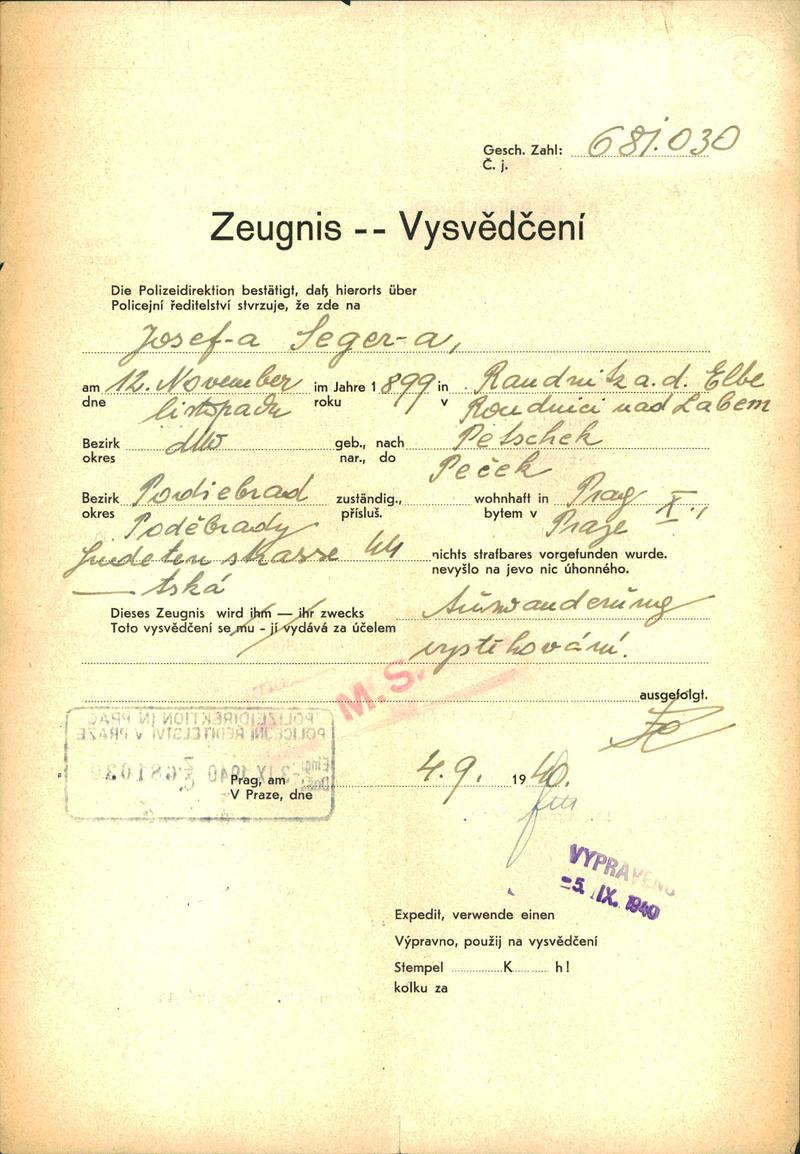 Gesch. Zahl: 681.030
Č. j.
Zeugnis -- Vysvědčení
Die Polizeidirektion bestätigt, daß hierorts über
Policejní ředitelství stvrzuje, že zde na
Josef-a Seger-a,
am 12. November im Jahre 1899 in Raudnitz a.d. Elbe
dne listopadu roku v Roudnici nad Labem
Bezirk dtto geb., nach Petschek
okres nar., do Peček
Bezirk Podiebrad zuständig., wohnhaft in Prag X.,
okres Poděbrady přísluš. bytem v Praze
Sudeten strasse 44 nichts strafbares vorgefunden wurde.
— tská nevyšlo na jevo nic úhonného.
Dieses Zeugnis wird ihm — ihr zwecks Auswanderung
Toto vysvědčení se mu - jí vydává za účelem vystěhování.
M.S.
ausgefolgt.
POLIZEIDIREKTION IN PRAG
POLICEJNÍ ŘEDITELSTVÍ V PRAZE
Eing. -2. IX. 1940 681030
Došlo
Prag, am 4.9. 1940.
V Praze, dne
VYPRAVENO
-5. IX. 1940
Expedit, verwende einen
Výpravno, použij na vysvědčení
Stempel K h!
kolku za